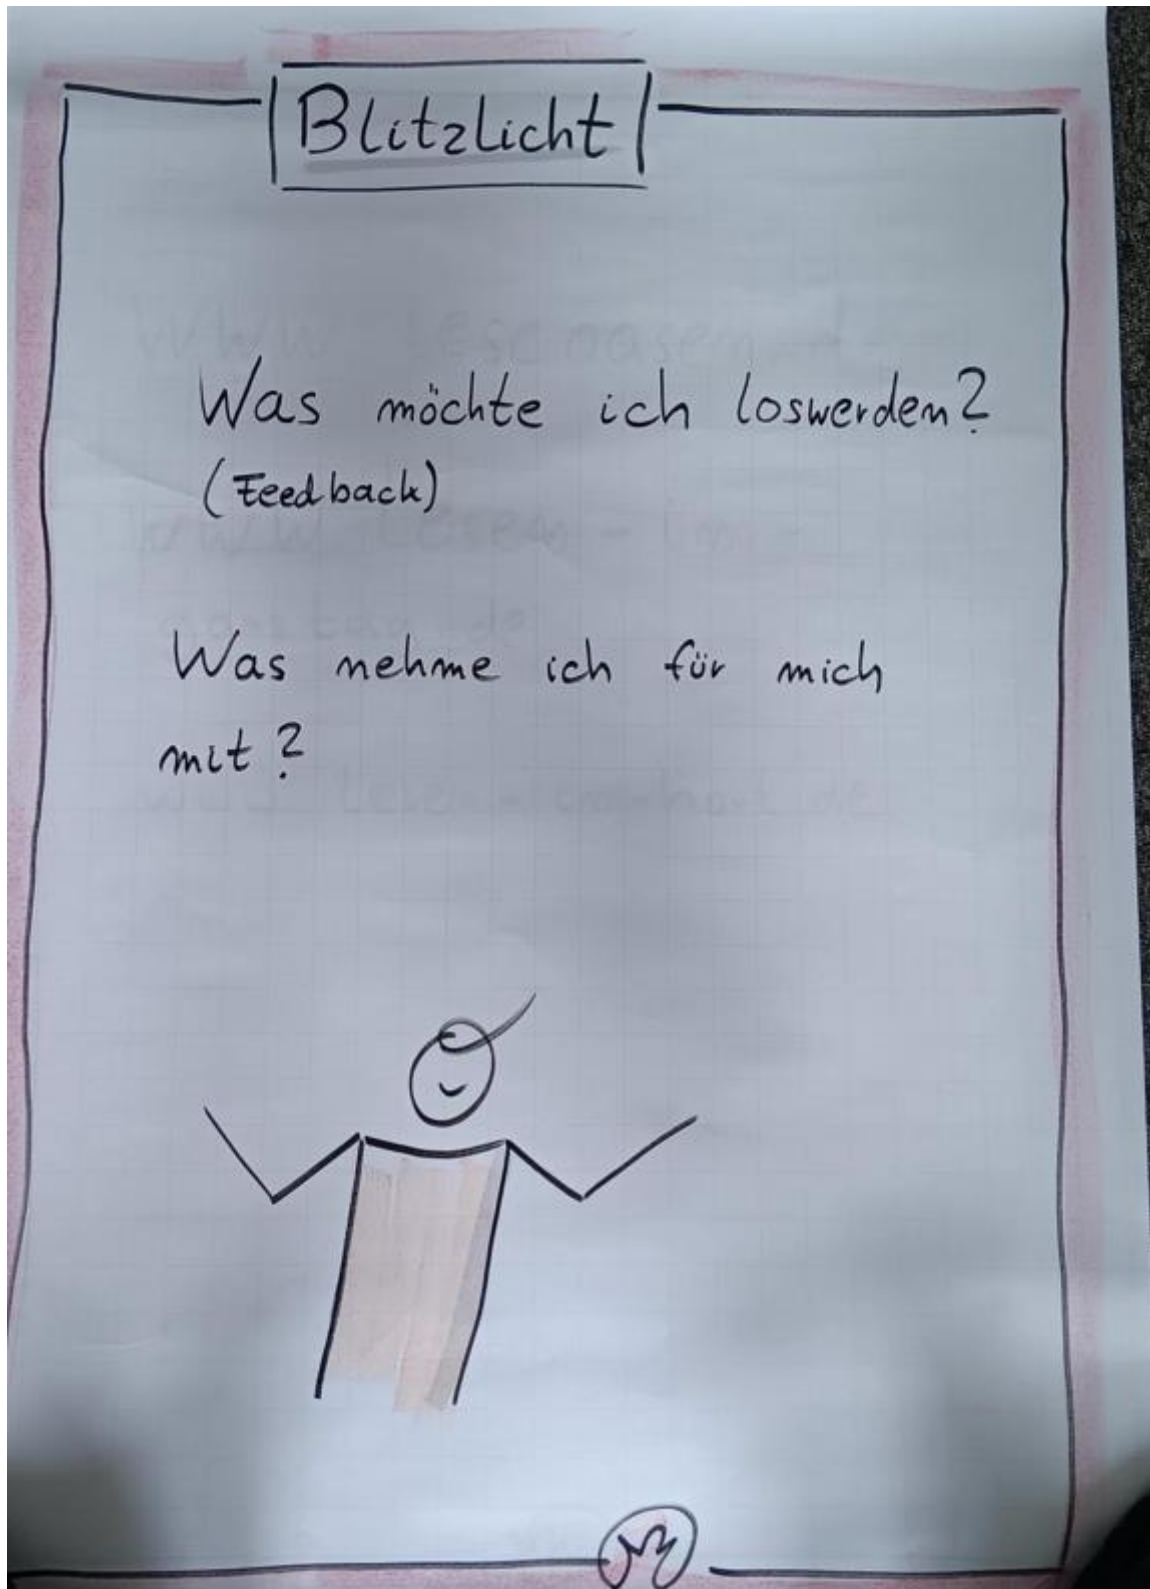 Blitzlicht
Was möchte ich loswerden?
(Feedback)
Was nehme ich für mich
mit?